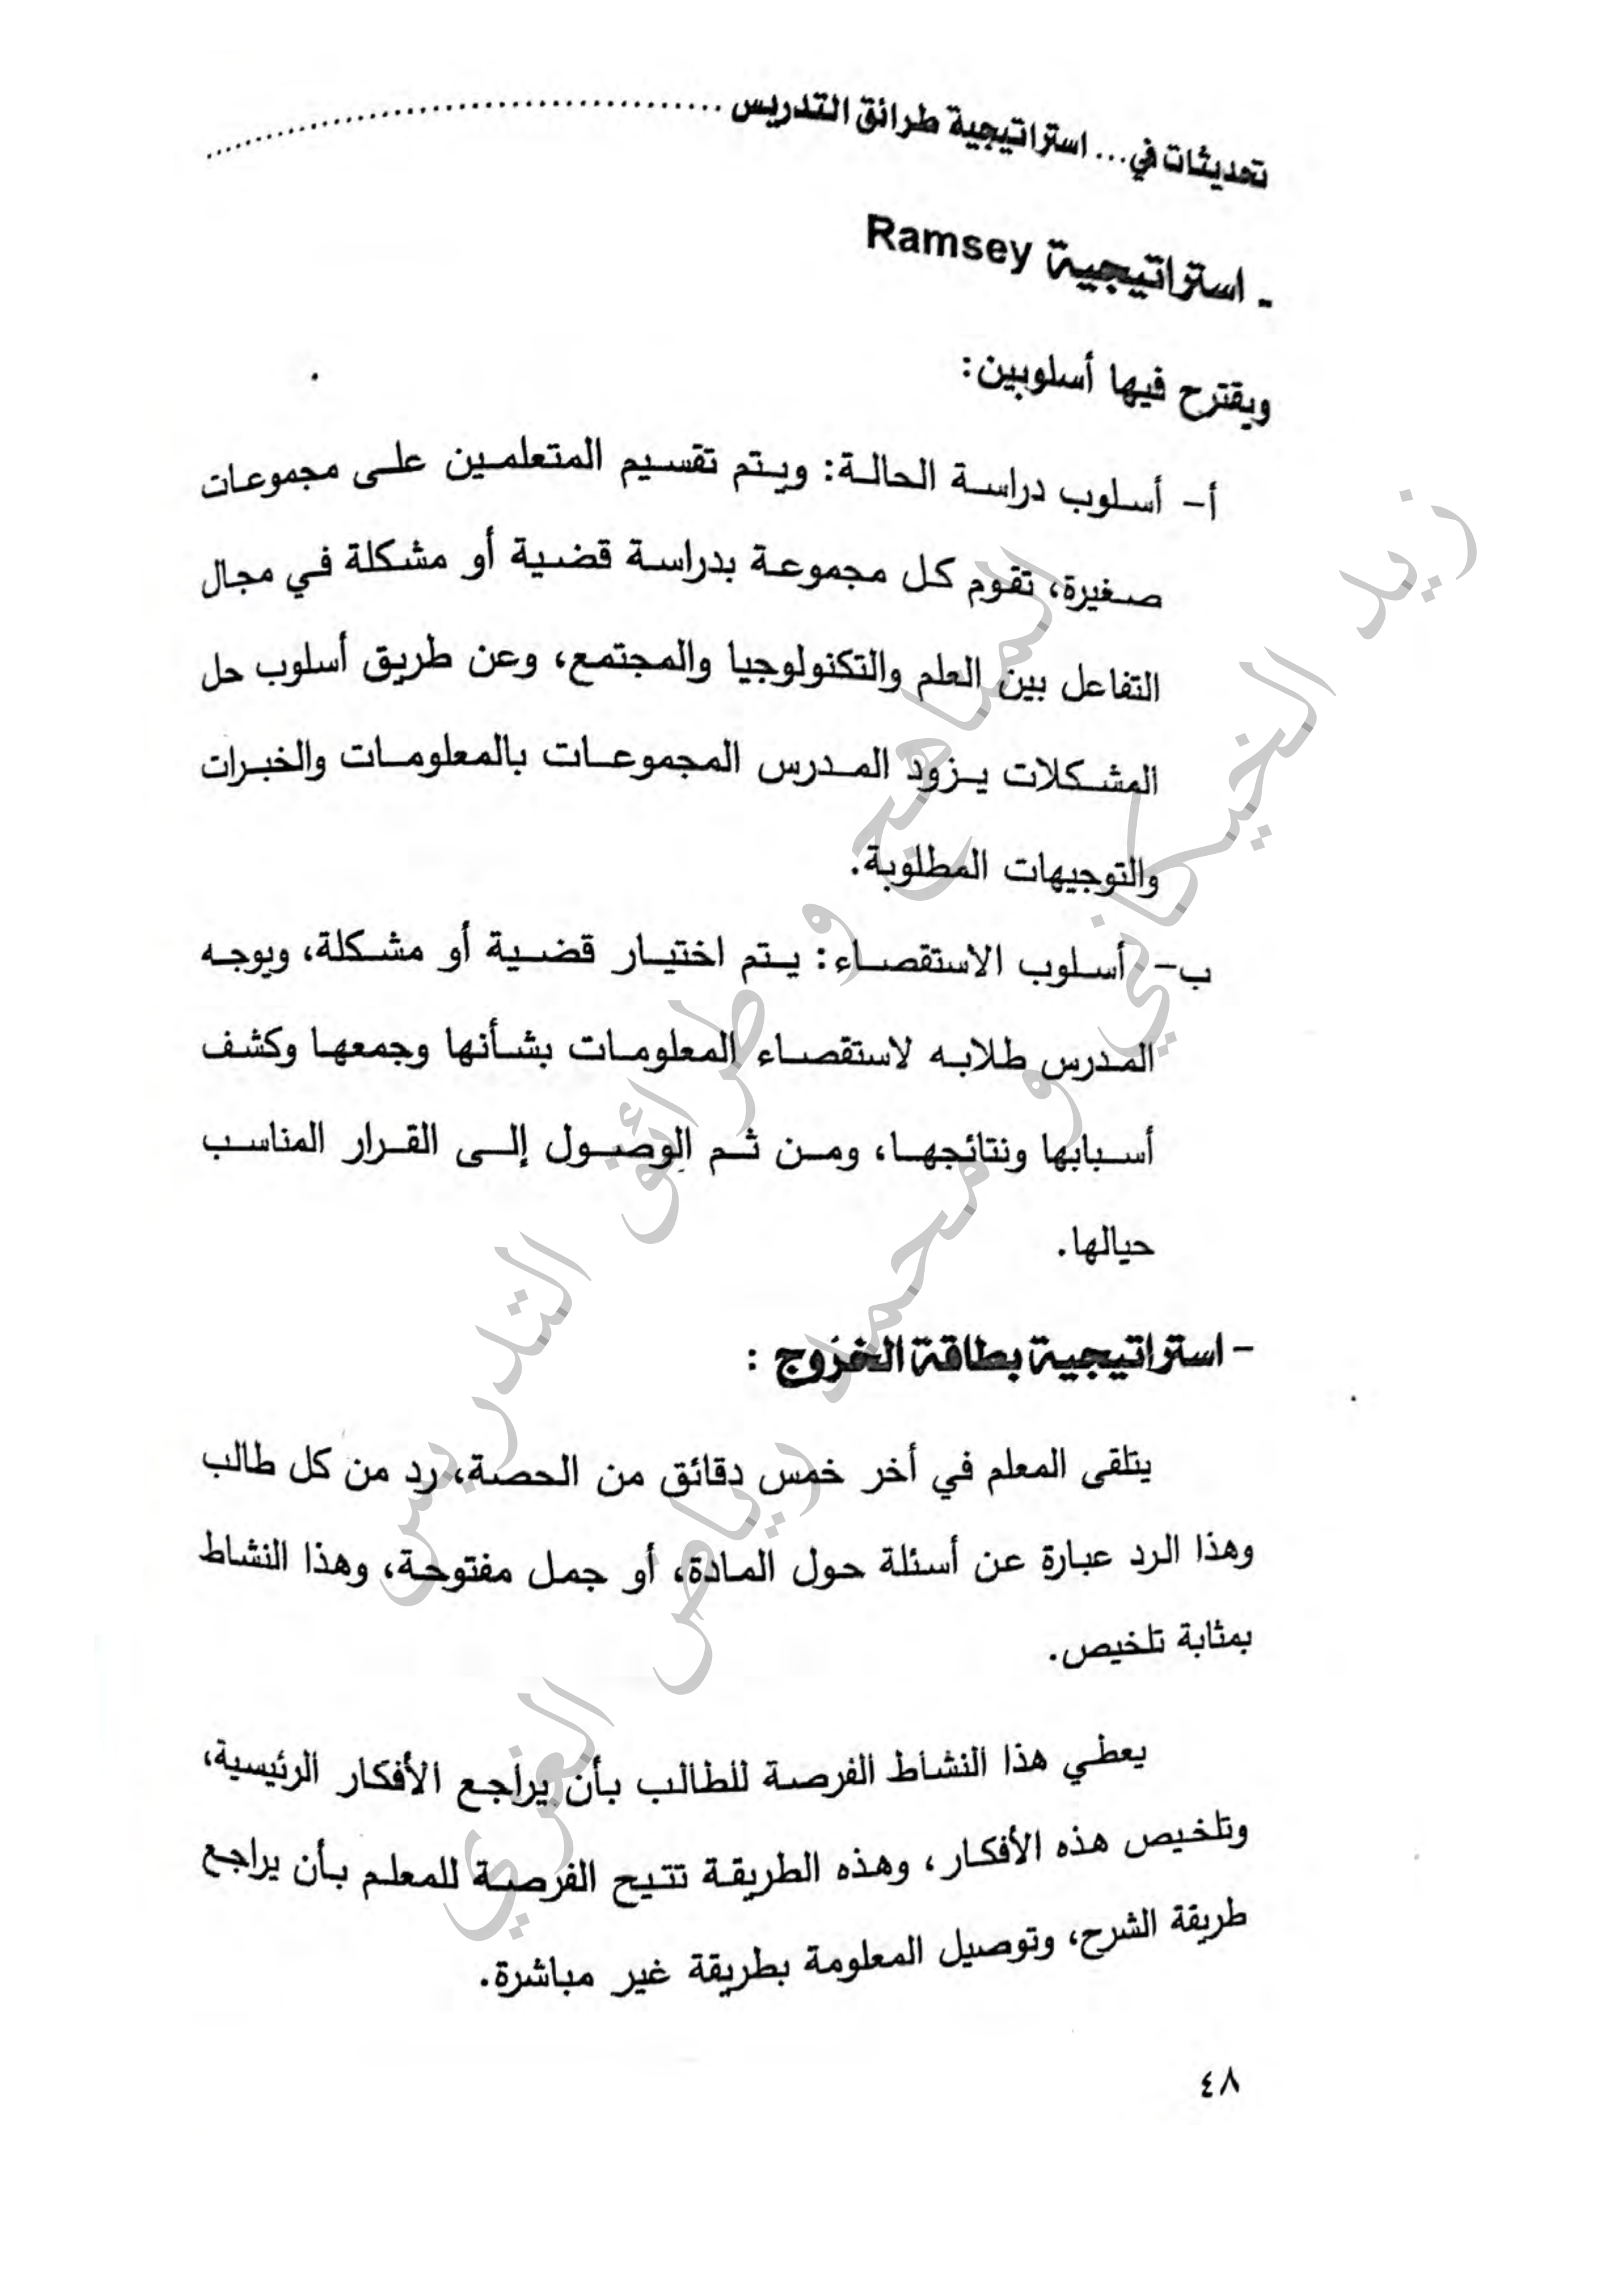 تحديثات في... استراتيجية طرائق التدريس
- استراتيجية Ramsey
ويقترح فيها أسلوبين:
أ- أسلوب دراسة الحالة: ويتم تقسيم المتعلمين على مجموعات
صغيرة، تقوم كل مجموعة بدراسة قضية أو مشكلة في مجال
التفاعل بين العلم والتكنولوجيا والمجتمع، وعن طريق أسلوب حل
المشكلات يزود المدرس المجموعات بالمعلومات والخبرات
والتوجيهات المطلوبة.
ب- أسلوب الاستقصاء: يتم اختيار قضية أو مشكلة، ويوجه
المدرس طلابه لاستقصاء المعلومات بشأنها وجمعها وكشف
أسبابها ونتائجها، ومن ثم الوصول إلى القرار المناسب
حيالها.
- استراتيجية بطاقة الخروج :
يتلقى المعلم في أخر خمس دقائق من الحصة، رد من كل طالب
وهذا الرد عبارة عن أسئلة حول المادة، أو جمل مفتوحة، وهذا النشاط
بمثابة تلخيص.
يعطي هذا النشاط الفرصة للطالب بأن يراجع الأفكار الرئيسية،
وتلخيص هذه الأفكار، وهذه الطريقة تتيح الفرصة للمعلم بأن يراجع
طريقة الشرح، وتوصيل المعلومة بطريقة غير مباشرة.
٤٨
المناهج و طرائق التدريس
زيد الخيكاني و محمد رياض الغزي